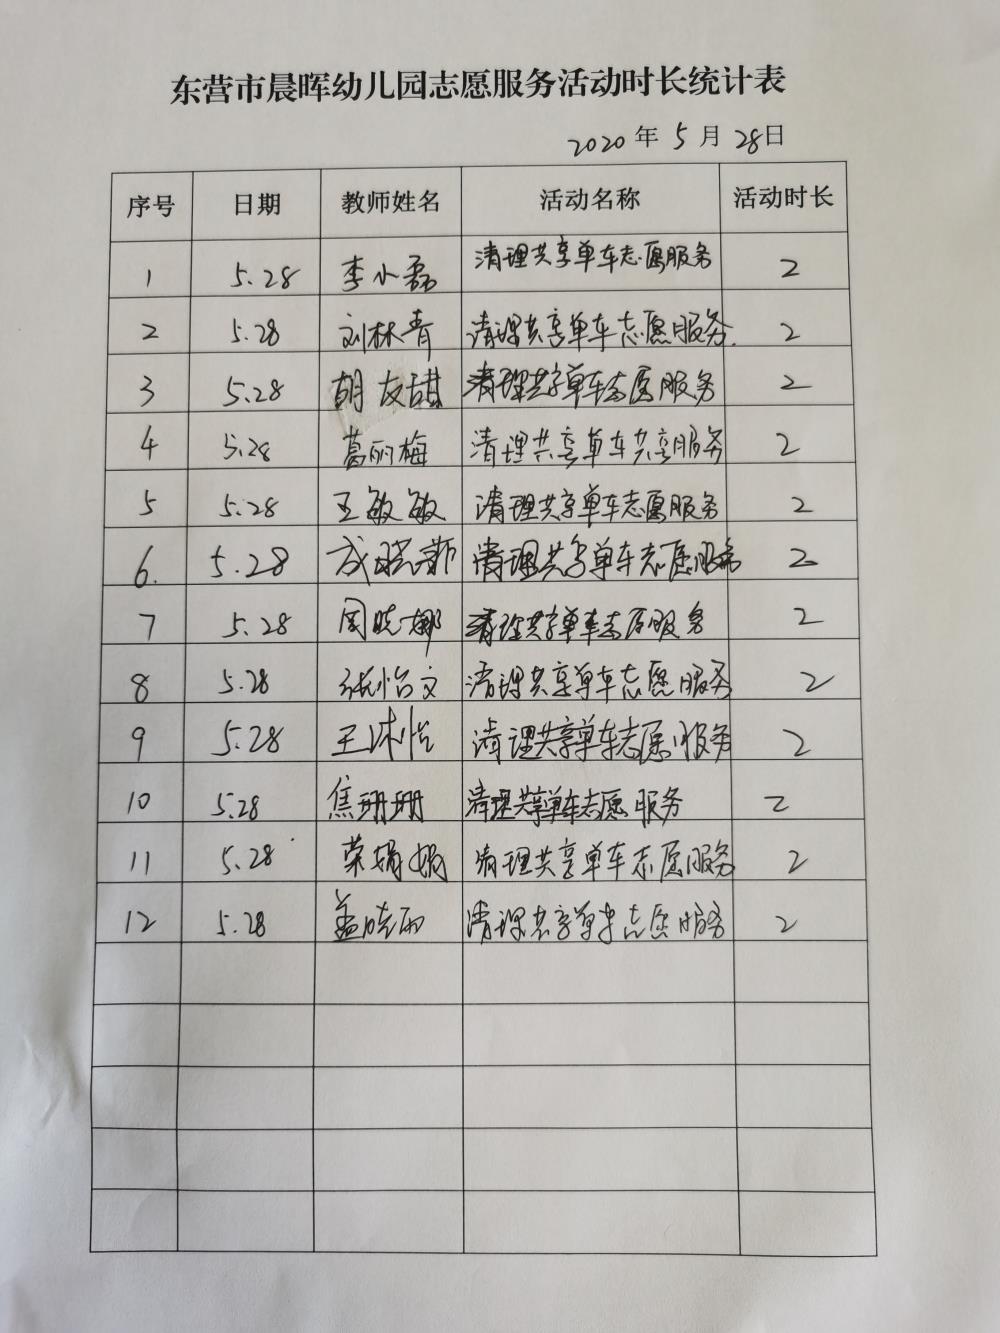 东营市晨晖幼儿园志愿服务活动时长统计表
2020年5月28日
序号 日期 教师姓名 活动名称 活动时长
1 5.28 李小磊 清理共享单车志愿服务 2
2 5.28 刘林青 清理共享单车志愿服务. 2
3 5.28 胡友甜 清理共享单车志愿服务 2
4 5.28 葛丽梅 清理共享单车共享服务 2
5 5.28 王敏敏 清理共享单车志愿服务 2
6. 5.28 清理共享单车志愿服务 2
7 5.28 周晓娜 清理共享单车志愿服务 2
8 5.28 张怡文 清理共享单车志愿服务 2
9 5.28 王沐怡 清理共享单车志愿服务 2
10 5.28 焦珊珊 清理共享单车志愿服务 2
11 5.28 荣娟娟 清理共享单车志愿服务 2
12 5.28 盖晓雨 清理共享单车志愿服务 2